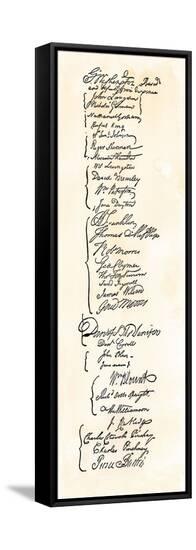 Go Washington Presidt
and deputy from Virginia
John Langdon
Nicholas Gilman
Nathaniel Gorham
Rufus King
Wm Saml Johnson
Roger Sherman
Alexander Hamilton
Wil Livingston
David Brearley
Wm Paterson
Jona Dayton
B Franklin
Thomas Mifflin
Robt Morris
Geo Clymer
Tho FitzSimons
Jared Ingersoll
James Wilson
Gouv Morris
Danl Carroll
John Blair
Wm Blount
Richd Dobbs Spaight
Hu Williamson
J. Rutledge
Charles Cotesworth Pinckney
Charles Pinckney
Pierce Butler